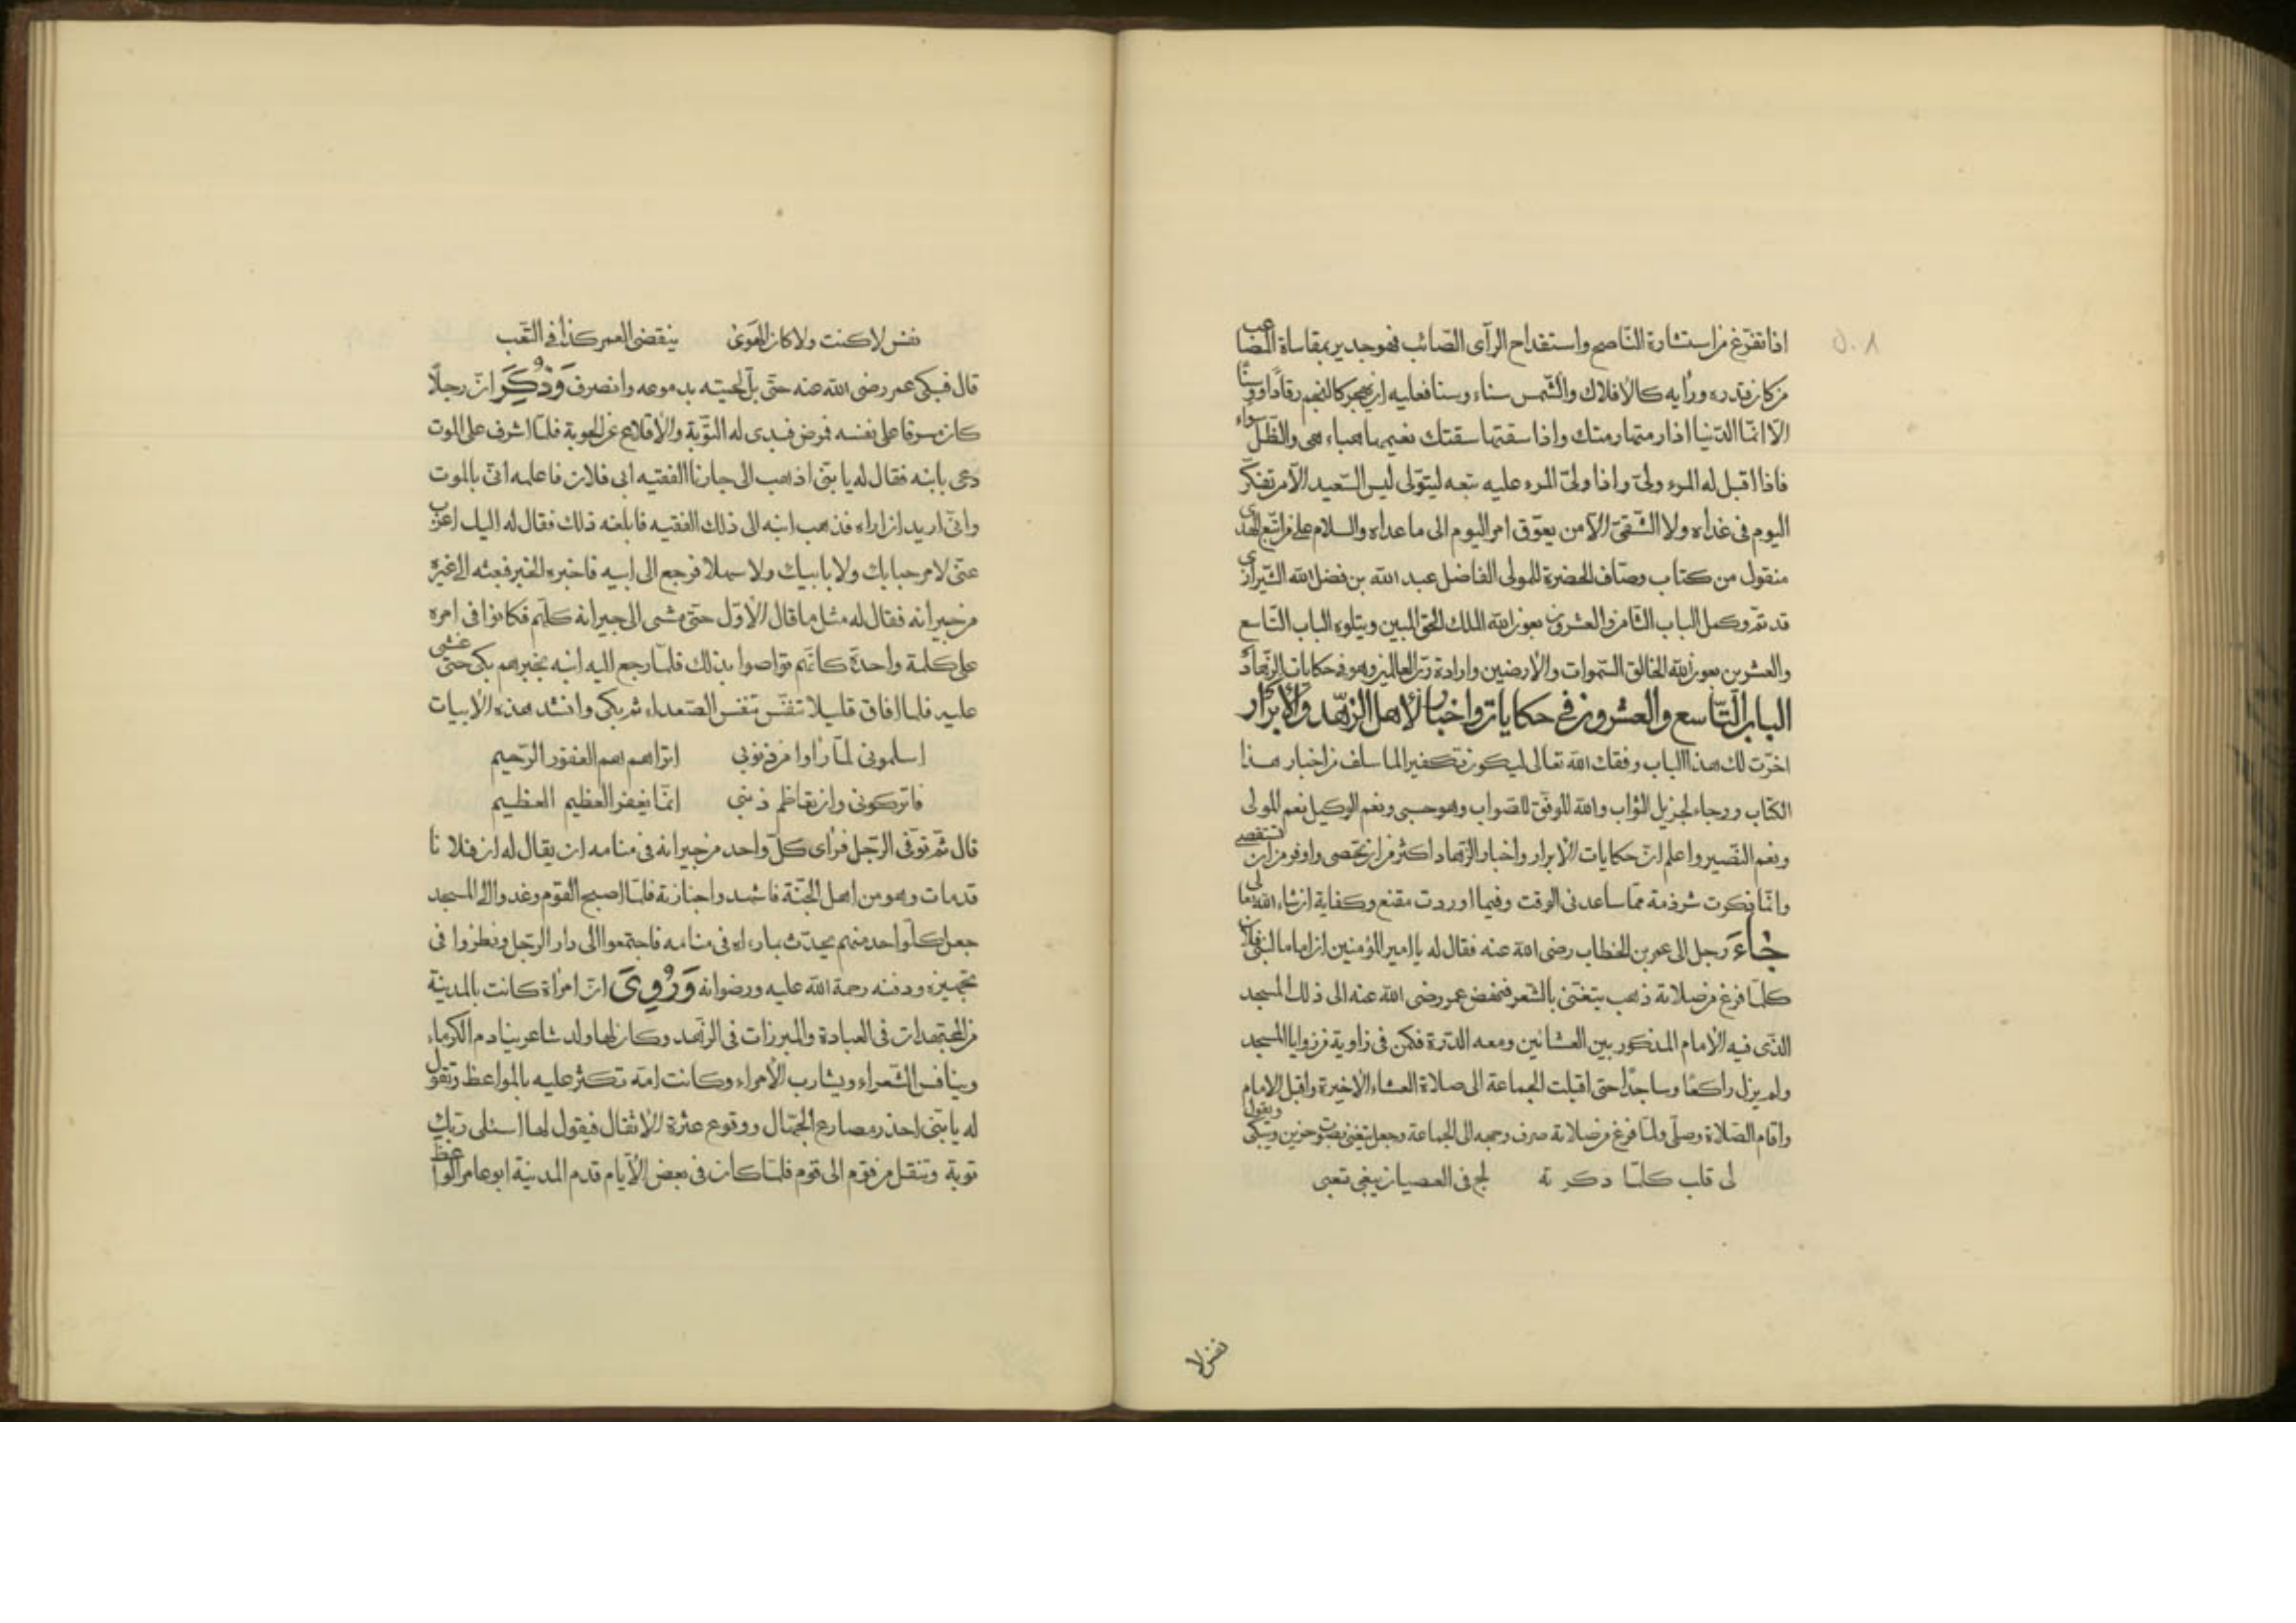 اذا تفرّغ من استشارة النّاصح واستقداح الرآى الصّائب فهو جدير بمقاساة المصاعب
من كان قدره ورأيه كالافلاك والشّمس سناء وسنا فعليه ان يهجر كالنجم رقادا ووسنًا
الا انّما الدّنيا اذا رمتها رمتك واذا سقتها سقتك نعيمها هباء هى والظلّ سواء
فاذا اقبل له المرء ولىّ واذا ولىّ المرء عليه تبعه ليتولى ليس السّعيد الآ من تفكّر
اليوم فى غداه ولا الشّقىّ الآ من يعوّق امر اليوم الى ما عداه والسلام على من اتّبع الهدى
منقول من كتاب وصّاف الحضرة للمولى الفاضل عبد الله بن فضل الله الشّيرازى
قد تمّ وكمل الباب الثّامن والعشرون بعون الله الملك الحق المبين ويتلوه الباب التّاسع
والعشرين بعون الله الخالق السّموات والارضين وارادة ربّ العالمين وهو فى حكايات الزّهاد
الباب التّاسع والعشرون فى حكايات واخبار لأهل الزّهد والأبرار
اخرت لك هذا الباب وفقك الله تعالى ليكون تكفيرا لما سلف من اخبار هذا
الكتاب ورجاء لجزيل الثواب والله الموفّق للصّواب وهو حسبى ونعم الوكيل نعم المولى
ونعم النّصير واعلم انّ حكايات الأبرار واخبار الزّهاد اكثر من ان تحصى واوفر من ان تستقصى
وانّما ذكرت شرذمة ممّا ساعدنى الوقت وفيما اوردت مقنع وكفاية ان شاء الله تعالى
جاء رجل الى عمر بن الخطاب رضى الله عنه فقال له يا امير المؤمنين ان امام البنى فلان
كلّما فرغ من صلاته ذهب يتغنّى بالشعر فنهض عمر رضى الله عنه الى ذلك المسجد
الذى فيه الامام المذكور بين العشائين ومعه الدّرة فكمن فى زاوية من زوايا المسجد
ولم يزل راكعًا وساجدًا حتى اقبلت الجماعة الى صلاة العشاء الاخيرة واقبل الامام
واقام الصّلاة وصلّى ولمّا فرغ من صلاته صرف وجهه الى الجماعة وجعل يتغنى بصوت حزين ويبكى ويقول
لى قلب كلّما ذكرته لج فى العصيان يبغى تعبى
نفس لا
نفس لا كنت ولا كان الهوى ينقضى العمر كذا فى التّعب
قال فبكى عمر رضى الله عنه حتّى بلّ لحيته بدموعه وانصرف وذُكِرَ انّ رجلاً
كان مسرفا على نفسه فرض فبدى له التّوبة والاقلاع عن الحوبة فلمّا اشرف على الموت
دعى بابنه فقال له يا بنىّ اذهب الى جارنا الفقيه ابى فلان فاعلمه انىّ بالموت
وانىّ اريد ان اراه فذهب ابنه الى ذلك الفقيه فابلغه ذلك فقال له اليك اعزب
عنّى لا مرحبا بك ولا بابيك ولا سهلا فرجع الى ابيه فاخبره الخبر فبعثه الى غيره
من جيرانه فقال له مثل ما قال الأوّل حتى مشى الى جيرانه كلّهم فكانوا فى امره
على كلمة واحدة كانّهم تواصوا بذلك فلمّا رجع اليه ابنه بخبرهم بكى حتى غشى
عليه فلما افاق قليلا تنفّس تنفس الصّعداء ثم بكى وانشد هذه الأبيات
اسلمونى لمّا رأوا من ذنوبى اتراهم هم الغفور الرّحيم
فاتركونى وان تعاظم ذنبى انّما يغفر العظيم العظيم
قال ثمّ توفّى الرّجل فرأى كلّ واحد من جيرانه فى منامه ان يقال له ان فلانا
قد مات وهو من اهل الجنّة فاشهدوا جنازته فلمّا اصبح القوم وغدوا الى المسجد
جعل كلّ واحد منهم يحدّث بما رءاه فى منامه فاجتمعوا الى دار الرّجل ونظروا فى
تجهيزه ودفنه رحمة الله عليه ورضوانه وَرُوِىَ انّ امرأة كانت بالمدينة
من المجتهدات فى العبادة والمبرزات فى الزّهد وكان لها ولد شاعر ينادم الكرماء
وينافس الشّعراء ويشارب الأمراء وكانت امّه تكثر عليه بالمواعظ وتقول
له يا بنىّ احذر مصارع الجهّال ووقوع عثرة الأثقال فيقول لها اسئلى ربّك
توبة وتنقل من قوم الى قوم فلمّا كان فى بعض الأيّام قدم المدينة ابو عامر الواعظ